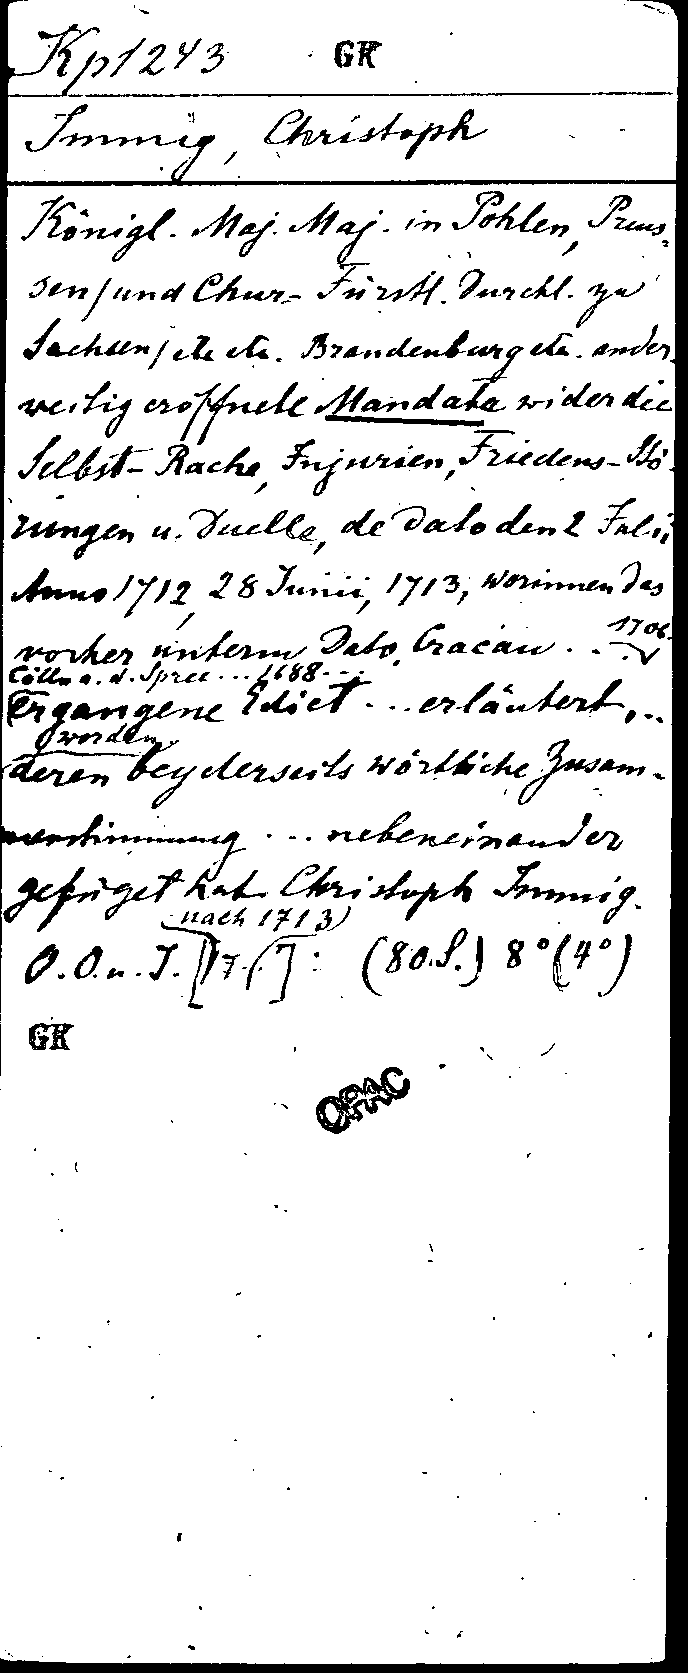 Kp 1243 GK
Immig, Christoph
Königl. Maj. Maj. in Pohlen, Preus-
sen/und Chur-Fürstl. Durchl. zu
Sachsen/etc etc. Brandenburg etc. ander-
weitig eröffnete Mandata wider die
Selbst-Rache, Injurien, Friedens-Stö-
rungen u. Duelle, de Dato den 2 Julii
Anno 1712, 28 Junii, 1713, worinnen das
vorher unterm Dato Cracau ... 1706.
Cölln a. d. Spree ... 1688 ...
Ergangene Edict ... erläutert, ..
worden
deren beyderseits wörtliche Zusam-
... nebeneinander
gefüget hat Christoph Immig.
nach 1713)
O. O. u. J. [17..] : (80 S.) 8° (4°)
GK
OPAC